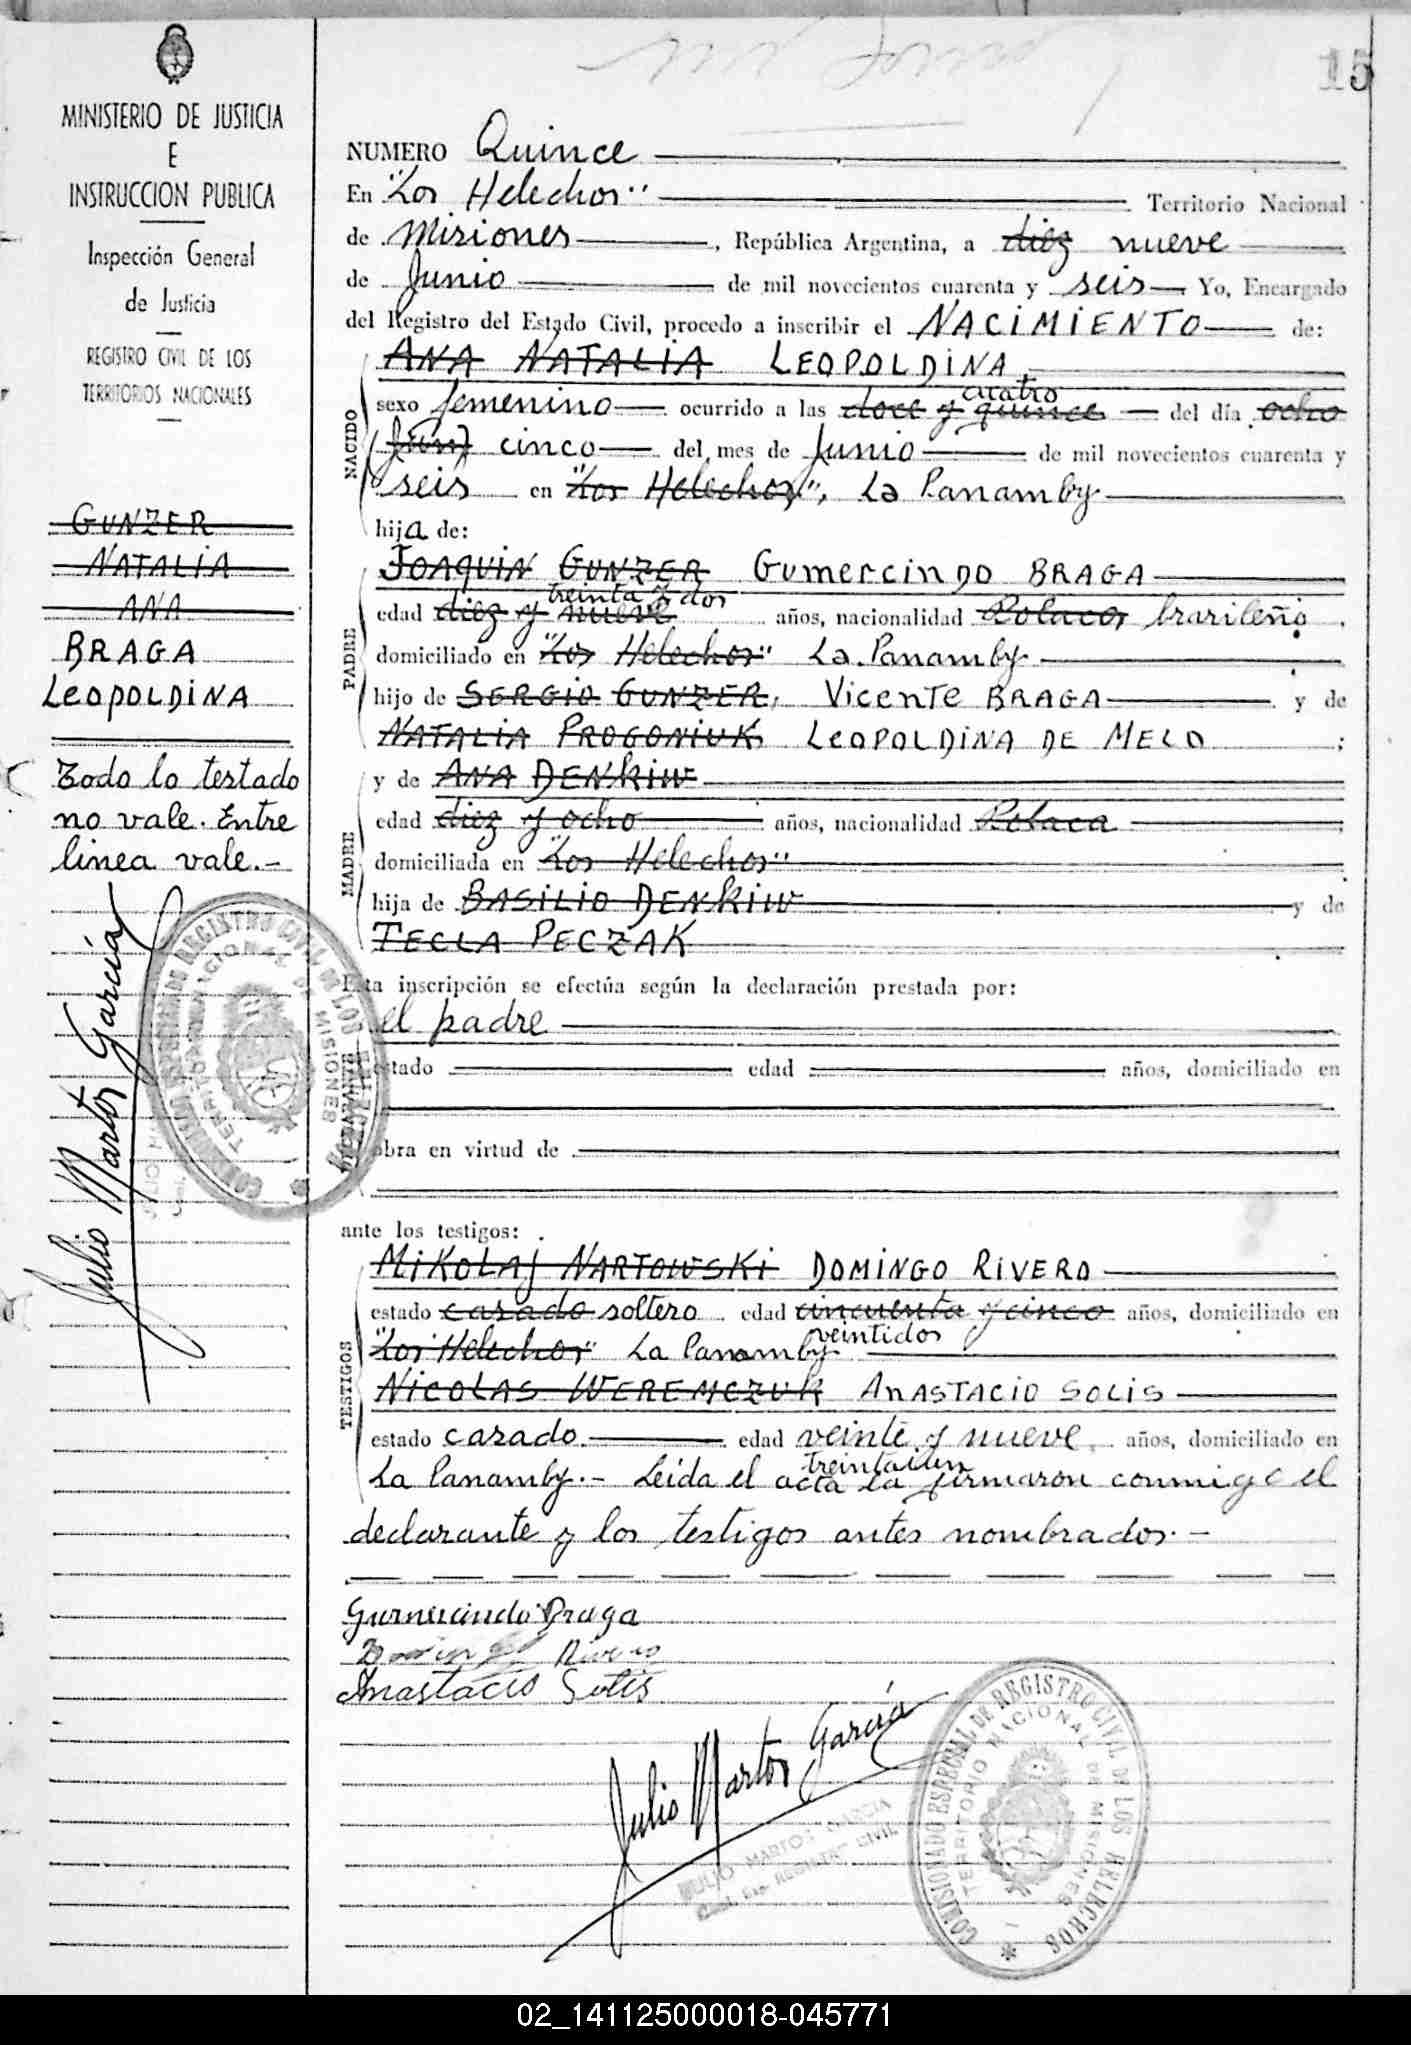 15
MINISTERIO DE JUSTICIA
E
INSTRUCCION PUBLICA
Inspección General
de Justicia
REGISTRO CIVIL DE LOS
TERRITORIOS NACIONALES
GUNZER
NATALIA
ANA
BRAGA
LEOPOLDINA
Todo lo testado
no vale. Entre
linea vale.-
Julio Martos García
NUMERO Quince
En "Los Helechos" Territorio Nacional
de Misiones, República Argentina, a diez nueve
de Junio de mil novecientos cuarenta y seis Yo, Encargado
del Registro del Estado Civil, procedo a inscribir el NACIMIENTO de:
NACIDO
ANA NATALIA LEOPOLDINA
cuatro
sexo femenino ocurrido a las doce y quince del día ocho
(Jun) cinco del mes de Junio de mil novecientos cuarenta y
seis en "Los Helechos", La Panamby
hija de:
PADRE
JOAQUIN GUNZER Gumercindo BRAGA
treinta y dos
edad diez y nueve años, nacionalidad Polaco, brasileño.
domiciliado en "Los Helechos" La Panamby
hijo de SERGIO GUNZER, Vicente BRAGA y de
NATALIA PROGONIUK LEOPOLDINA DE MELO ;
MADRE
y de ANA DENKIW
edad diez y ocho años, nacionalidad Polaca
domiciliada en "Los Helechos"
hija de BASILIO DENKIW y de
TECLA PECZAK
Esta inscripción se efectúa según la declaración prestada por:
el padre
estado edad años, domiciliado en
obra en virtud de
ante los testigos:
TESTIGOS
MIKOLAJ NARTOWSKI DOMINGO RIVERO
estado casado soltero edad cincuenta y cinco años, domiciliado en
veintidos
"Los Helechos" La Panamby
NICOLAS WEREMCZUK ANASTACIO SOLIS
estado casado edad veinte y nueve años, domiciliado en
treintaiun
La Panamby.- Leida el acta la firmaron conmigo el
declarante y los testigos antes nombrados.-
Gumercindo Braga
Rivero
Anastacio Solis
Julio Martos García
JULIO MARTOS GARCIA
COMISIONADO ESPECIAL DE REGISTRO CIVIL DE LOS HELECHOS
TERRITORIO NACIONAL DE MISIONES
02_141125000018-045771